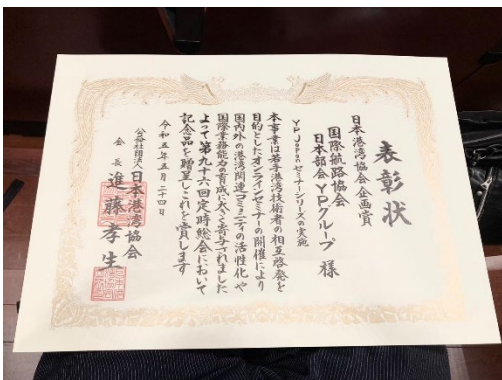 表彰状
日本港湾協会企画賞
国際航路協会
日本部会YPグループ 様
YP Japanセミナーシリーズの実施
本事業は若手港湾技術者の相互啓発を
目的としたオンラインセミナーの開催により
国内外の港湾関連コミュニティの活性化や
国際業務能力の育成に大きく寄与されました
よって第九十六回定時総会において
記念品を贈呈しこれを賞します
令和五年五月二十四日
公益社団法人日本港湾協会
会長 進藤孝生